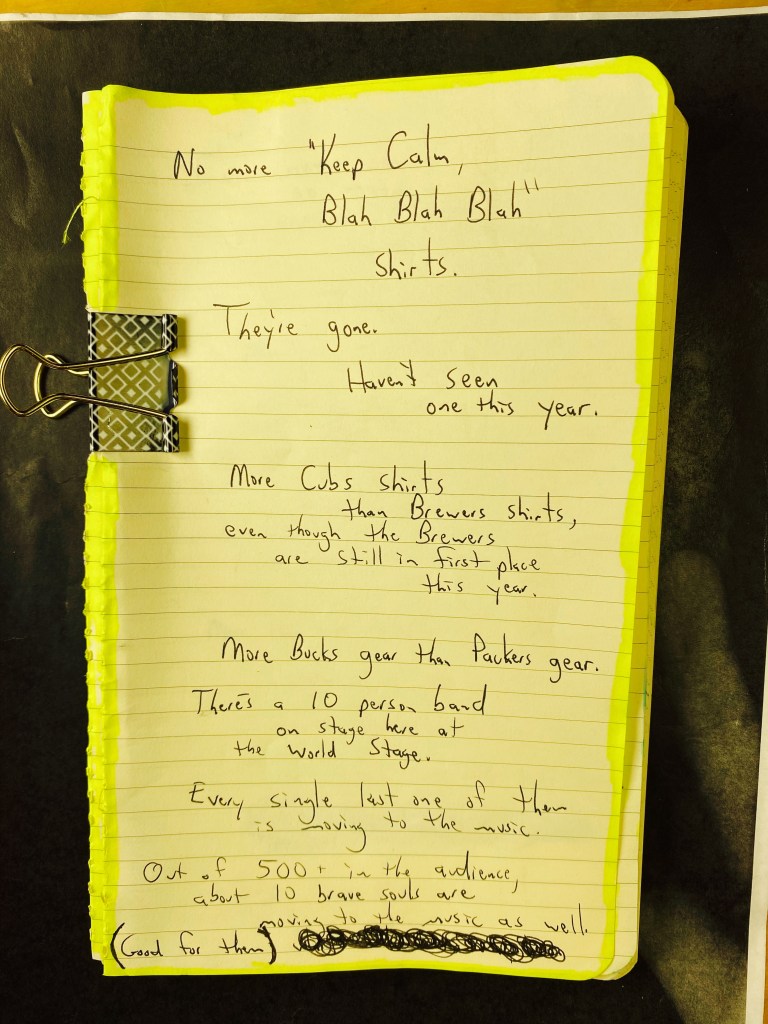 No more "Keep Calm,
Blah Blah Blah"
Shirts.
They're gone.
Haven't seen
one this year.
More Cubs shirts
than Brewers shirts,
even though the Brewers
are still in first place
this year.
More Bucks gear than Packers gear.
There's a 10 person band
on stage here at
the World Stage.
Every single last one of them
is moving to the music.
Out of 500+ in the audience,
about 10 brave souls are
moving to the music as well.
(Good for them)